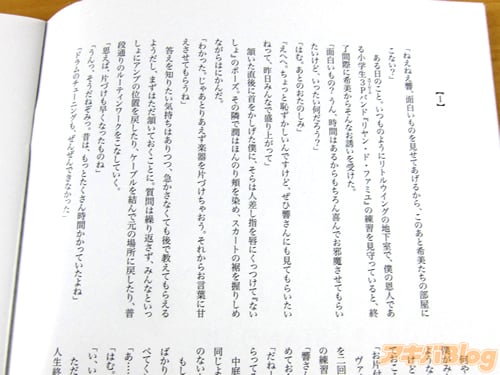 【1】
「ねえねえ響、面白いものを見せてあげるから、このあと希美たちの部屋に
こない？」
　ある日のこと。いつものようにリトルウイングの地下室で、僕の恩人であ
る小学生3Pバンド『リヤン・ド・ファミユ』の練習を見守っていると、終
了間際に希美からそんなお誘いを受けた。
「面白いもの？　うん、時間はあるからもちろん喜んでお邪魔させてもらい
たいけど、いったい何だろう？」
「はむ。あとのおたのしみ」
「えへへ、ちょっと恥ずかしいんですけど、ぜひ響さんにも見てもらいたい
ねって、昨日みんなで盛り上がって」
　頷いた直後に首をかしげた僕に、そらは人差し指を唇にくっつけて『ない
しょ』のポーズ。その隣で潤はほんのり頬を染め、スカートの裾を握りしめ
ながらはにかんだ。
「わかった。じゃあとりあえず楽器を片づけちゃおう。それからお言葉に甘
えさせてもらうね」
　答えを知りたい気持ちはありつつ、急かさなくても後で教えてもらえる
ようだし、まずはただ頷いておくことに。質問は繰り返さず、みんなといっ
しょにアンプの位置を戻したり、ケーブルを結んで元の場所に戻したり、普
段通りのルーティンワークをこなしていく。
「思えば、片づけも早くなったものね」
「うんっ、そうだねぞみっ。昔は、もっとたくさん時間かかっていたよね」
「ドラムのチューニングも、ぜんぜんできなかった」
何や
僕が
ような
てみ
「お片
てお
ヴァ
を二回
の練習
「響さ
めてお
らって
「だねー
中庭
同じよ
のない
もし
ばかり
べてく
「あ……
「はむ。
「い、い
ただ
人生終